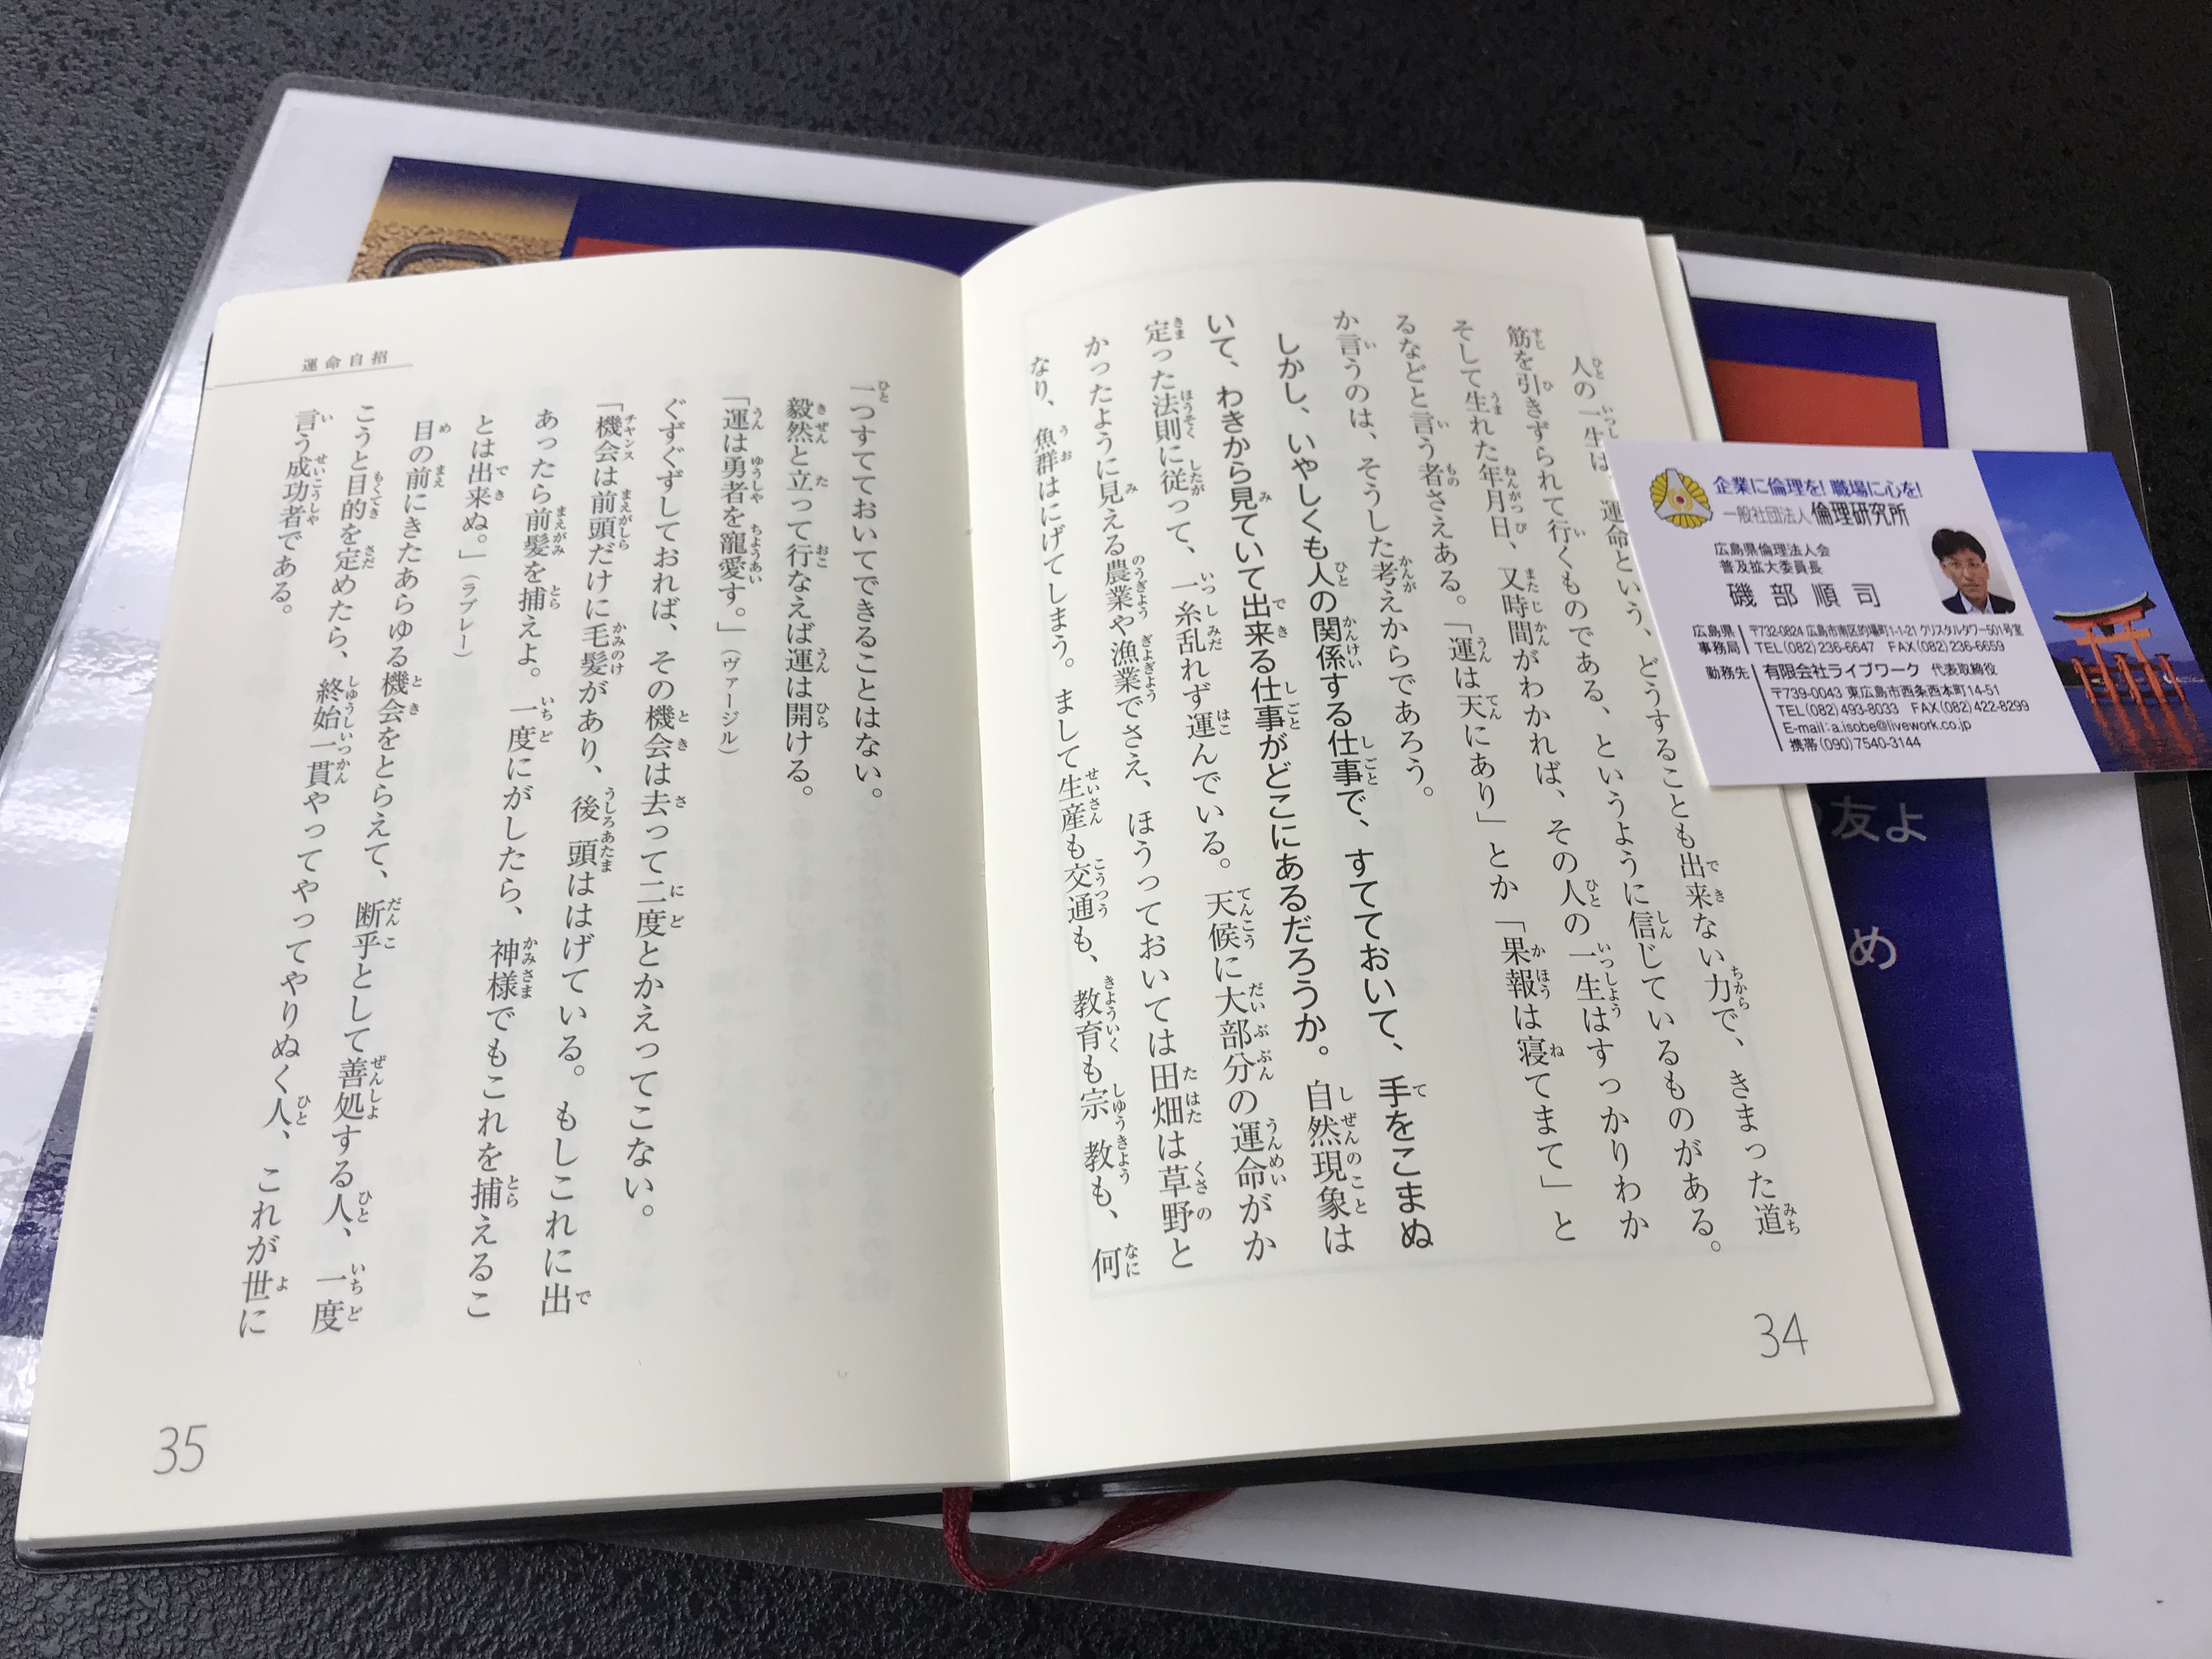 人の一生は 運命という、どうすることも出来ない力で、きまった道
筋を引きずられて行くものである、というように信じているものがある。
そして生れた年月日、又時間がわかれば、その人の一生はすっかりわか
るなどと言う者さえある。「運は天にあり」とか「果報は寝てまて」と
か言うのは、そうした考えからであろう。
しかし、いやしくも人の関係する仕事で、すてておいて、手をこまぬ
いて、わきから見ていて出来る仕事がどこにあるだろうか。自然現象は
定った法則に従って、一糸乱れず運んでいる。天候に大部分の運命がか
かったように見える農業や漁業でさえ、ほうっておいては田畑は草野と
なり、魚群はにげてしまう。まして生産も交通も、教育も宗教も、何
34
一つすてておいてできることはない。
毅然と立って行なえば運は開ける。
「運は勇者を寵愛す。」(ヴァージル)
ぐずぐずしておれば、その機会は去って二度とかえってこない。
「機会は前頭だけに毛髪があり、後頭ははげている。もしこれに出
あったら前髪を捕えよ。一度にがしたら、神様でもこれを捕えるこ
とは出来ぬ。」(ラブレー)
目の前にきたあらゆる機会をとらえて、断乎として善処する人、一度
こうと目的を定めたら、終始一貫やってやってやりぬく人、これが世に
言う成功者である。
運命自招
35
企業に倫理を!職場に心を!
一般社団法人 倫理研究所
広島県倫理法人会
普及拡大委員長
磯部順司
広島県事務局 〒732-0824 広島市南区的場町1-1-21 クリスタルタワー501号室
TEL(082)236-6647 FAX(082)236-6659
勤務先 有限会社ライブワーク 代表取締役
〒739-0043 東広島市西条西本町14-51
TEL(082)493-8033 FAX(082)422-8299
E-mail:a.isobe@livework.co.jp
携帯(090)7540-3144
の友よ
め